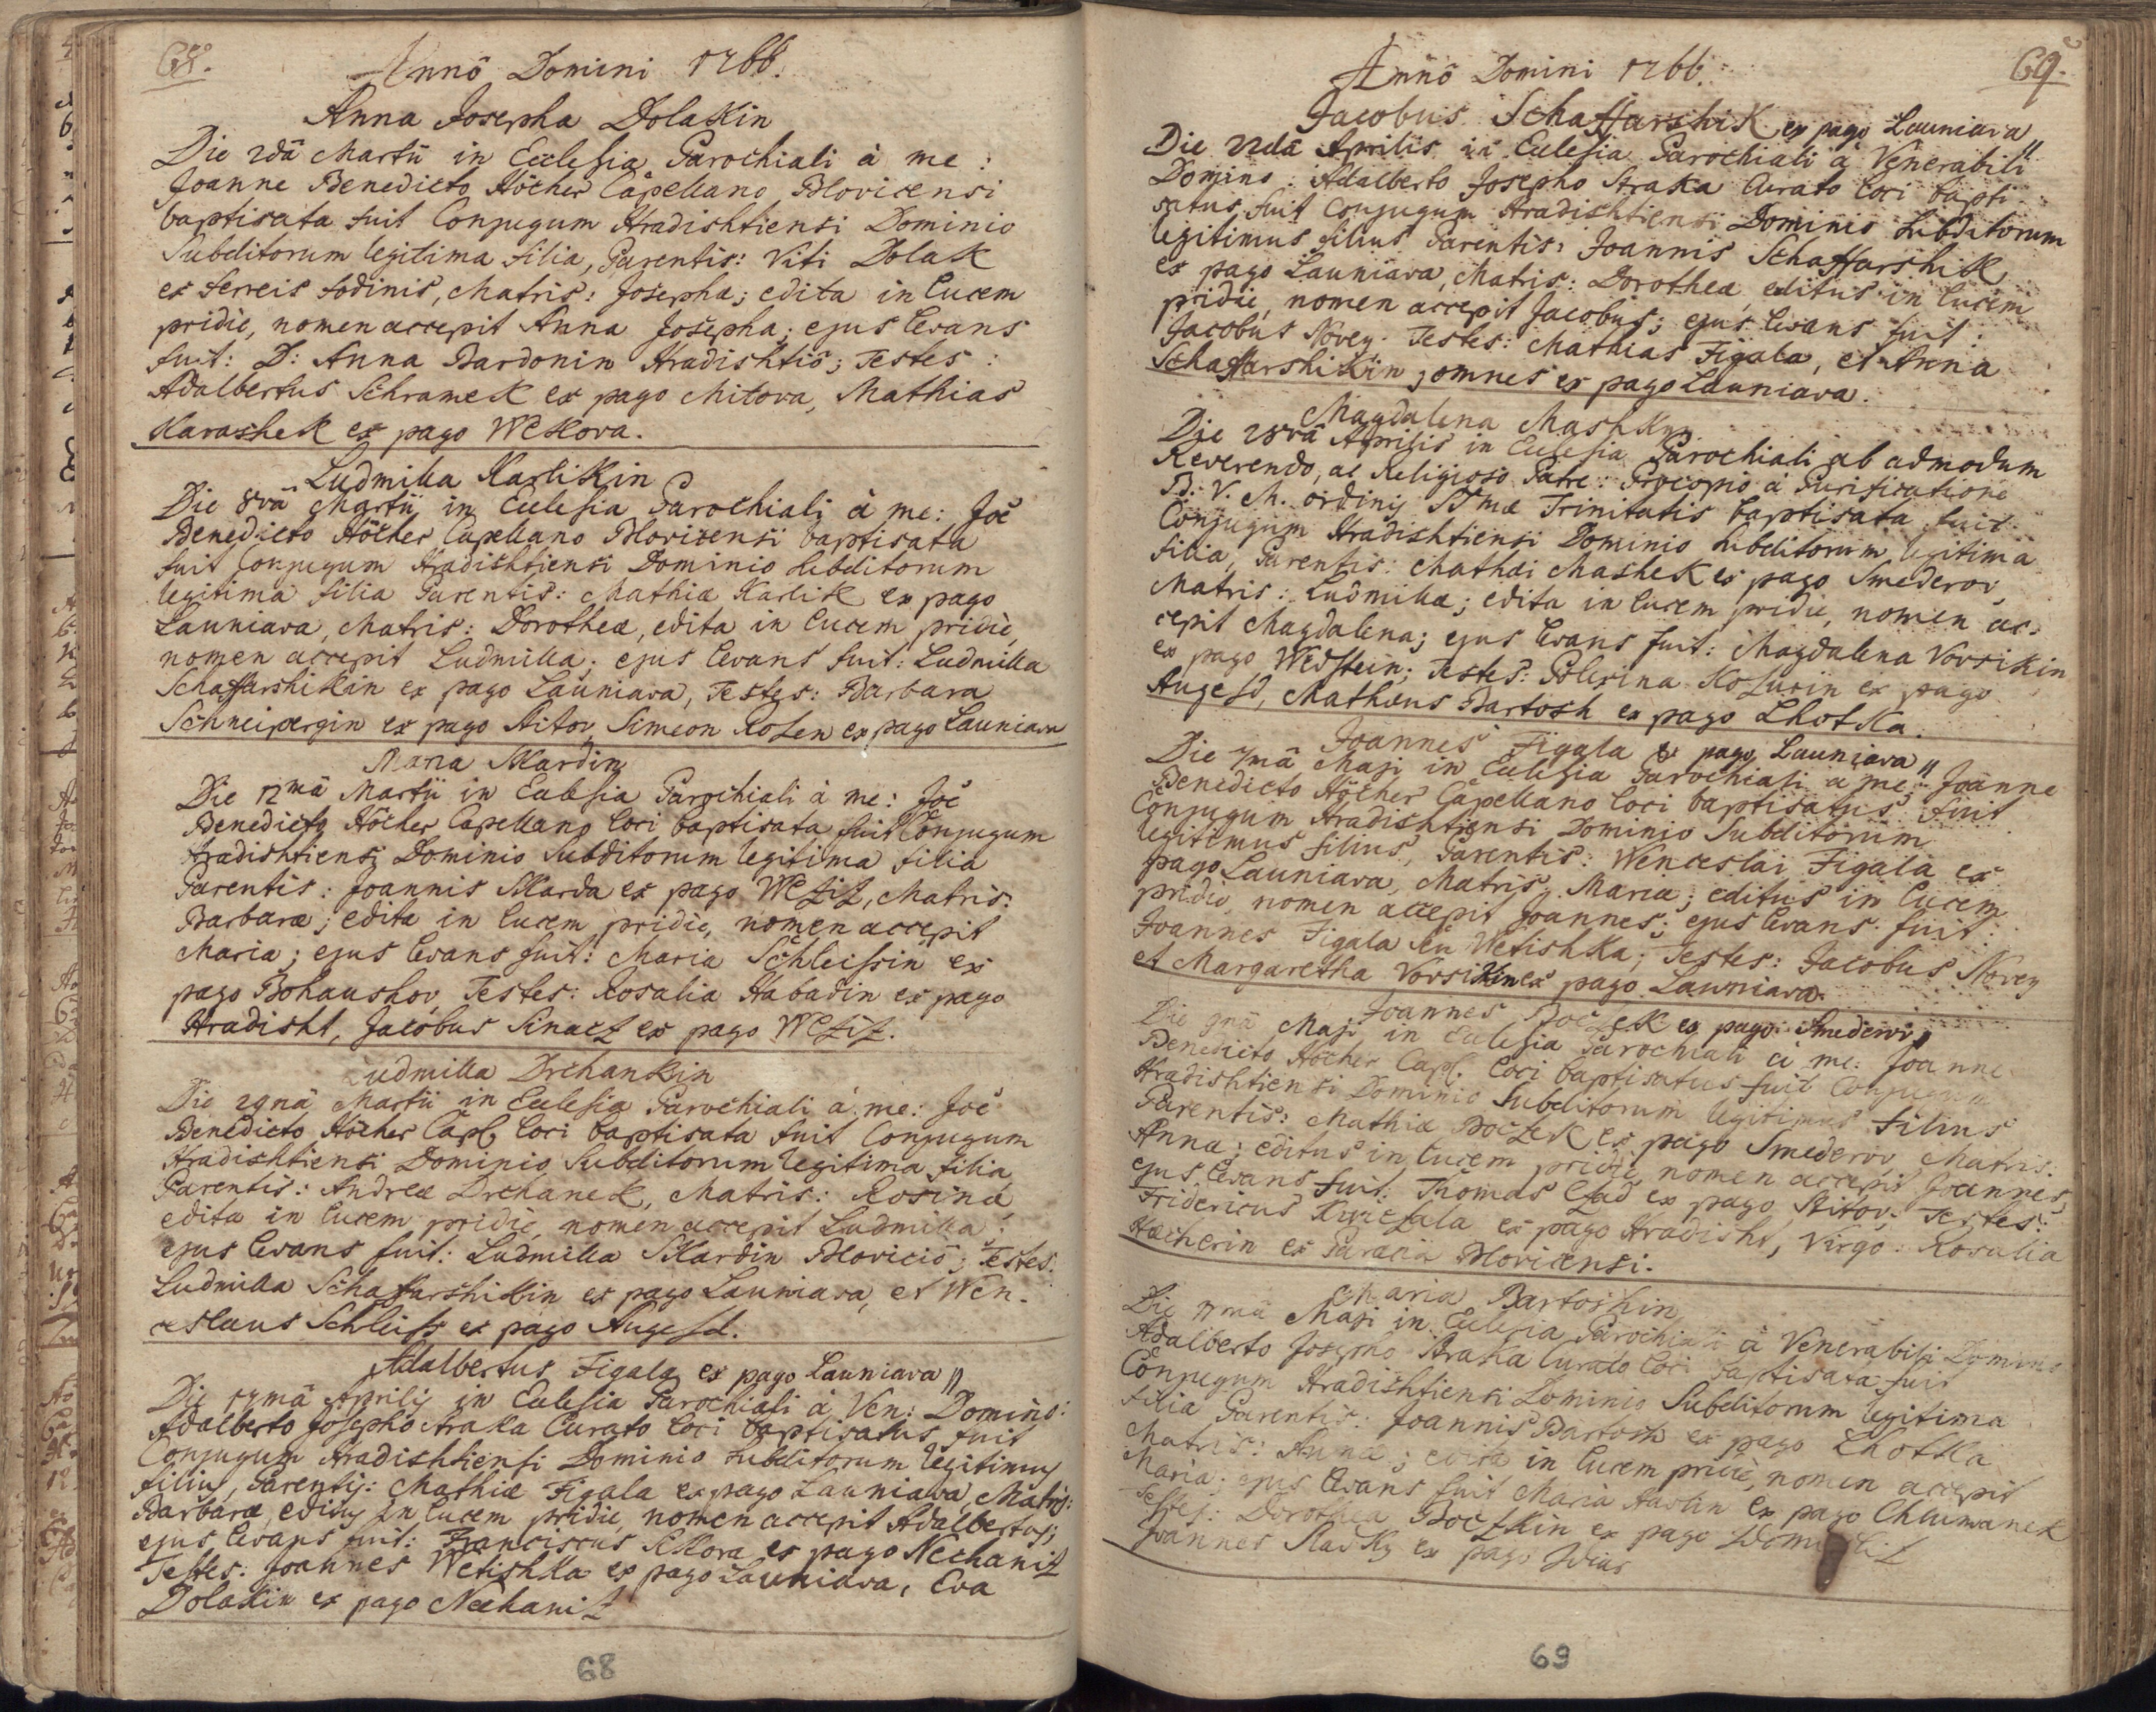 68.
Annô Domini 1766.
Anna Josepha Dolakin
Die 2dâ Martii in Ecclesia Parochiali à me:
Joanne Benedicto Höcher Capellano Blovicensi
baptisata fuit Conjugum Hradishtiensi Dominio
Subditorum legitima filia, Parentis: Viti Dolak
ex ferreis fodinis, Matris: Josepha; edita in lucem
pridie, nomen accepit Anna Josepha; ejus levans
fuit: D: Anna Bardonin Hradishtiô; Testes:
Adalbertus Schramek ex pago Mitova, Mathias
Karashek ex pago Weskova.
Ludmilla Karlikin
Die 8vâ Martii in Ecclesia Parochiali à me: Joê
Benedicto Höcher Capellano Blovicensi baptisata
fuit Conjugum Hradishtiensi Dominio subditorum
legitima filia Parentis: Mathiæ Karlik ex pago
Launiava, Matris: Dorotheæ, edita in lucem pridie,
nomen accepit Ludmilla; ejus levans fuit: Ludmilla
Schaffarshikin ex pago Launiava, Testes: Barbara
Schneipergin ex pago Stitov, Simeon Rosen ex pago Launiava
Maria Skardin
Die 12mâ Martii in Ecclesia Parochiali à me: Joê
Benedicto Höcher Capellano loci baptisata fuit Conjugum
Hradishtiensi Dominio Subditorum legitima filia
Parentis: Joannis Skarda ex pago Wcziz, Matris:
Barbaræ; edita in lucem pridie, nomen accepit
Maria; ejus levans fuit: Maria Schleissin ex
pago Bohaushov, Testes: Rosalia Habadin ex pago
Hradisht, Jacobus Sinacz ex pago Wcziz.
Ludmilla Drchankin
Die 29nâ Martii in Ecclesia Parochiali à me: Joê
Benedicto Höcher Capl. loci baptisata fuit Conjugum
Hradishtiensi Dominio Subditorum legitima filia
Parentis: Andreæ Drchanek, Matris: Rosinæ
edita in lucem pridie, nomen accepit Ludmilla;
ejus levans fuit: Ludmilla Skardin Bloviciô; Testes:
Ludmilla Schaffarshikin ex pago Launiava, et Wen-
ceslaus Schleiss ex pago Augezd.
Adalbertus Figala ex pago Launiava
Die 17mâ Aprilis in Ecclesia Parochiali à Ven: Domino:
Adalberto Josepho Straka Curato loci baptisatus fuit
Conjugum Hradishtiensi Dominio subditorum legitimus
filius, Parentis: Mathiæ Figala ex pago Launiava, Matris:
Barbaræ, editus in lucem pridie, nomen accepit Adalbertus;
ejus levans fuit: Franciscus Sikora ex pago Nechaniz
Testes: Joannes Wetishka ex pago Launiava, Eva
Dolakin ex pago Nechaniz
68
69.
Annô Domini 1766.
Jacobus Schaffarshik ex pago Launiava
Die 22dâ Aprilis in Ecclesia Parochiali à Venerabili
Domino: Adalberto Josepho Straka Curato loci bapti-
satus fuit Conjugum Hradishtiensi Dominio subditorum
legitimus filius Parentis: Joannis Schaffarshik
ex pago Launiava, Matris: Dorotheæ, editus in lucem
pridie, nomen accepit Jacobus; ejus levans fuit:
Jacobus Novey. Testes: Mathias Figala, et Anna
Schaffarshikin; omnes ex pago Launiava.
Magdalena Mashkin
Die 28vâ Aprilis in Ecclesia Parochiali ab admodum
Reverendo, ac Religioso Patre: Procopio à Purificatione
B: V. M. ordinis SSmæ Trinitatis baptisata fuit
Conjugum Hradishtiensi Dominio subditorum legitima
filia, Parentis: Mathæi Mashek ex pago Smederov,
Matris: Ludmillæ; edita in lucem pridie, nomen ac-
cepit Magdalena; ejus levans fuit: Magdalena Vorsikin
ex pago Wedstein; Testes: Polexina Kozurin ex pago
Augezd, Mathæus Bartosh ex pago Lhotka.
Joannes Figala ex pago Launiava
Die 7mâ Maji in Ecclesia Parochiali a me: Joanne
Benedicto Höcher Capellano loci baptisatus fuit
Conjugum Hradishtiensi Dominio Subditorum
legitimus filius, Parentis: Wenceslai Figala ex
pago Launiava, Matris: Mariæ; editus in lucem
pridie, nomen accepit Joannes; ejus levans fuit:
Joannes Figala seu Wetishka; Testes: Jacobus Novey
et Margaretha Vorsikin ex pago Launiava.
Joannes Boczek ex pago Smederov
Die 9nâ Maji in Ecclesia Parochiali à me: Joanne
Benedicto Höcher Capl. loci baptisatus fuit Conjugum
Hradishtiensi Dominio Subditorum legitimus filius
Parentis: Mathiæ Boczek ex pago Smederov, Matris:
Annæ; editus in lucem pridie, nomen accepit Joannes
ejus levans fuit: Thomas ex pago Stitov; Testes:
Fridericus Kwiczala ex pago Hradisht, Virgo: Rosalia
Höcherin ex Paræcia Blovicensi.
Maria Bartoshin
Die 17mâ Maji in Ecclesia Parochiali à Venerabili Domino
Adalberto Josepho Straka Curato loci baptisata fuit
Conjugum Hradishtiensi Dominio Subditorum legitima
filia Parentis: Joannis Bartosh ex pago Lhotka
Matris: Annæ; edita in lucem pridie, nomen accepit
Maria; ejus levans fuit Maria ex pago Chlumanek
Testes: Dorothea Boczkin ex pago
Joannes Slavky ex pago
69